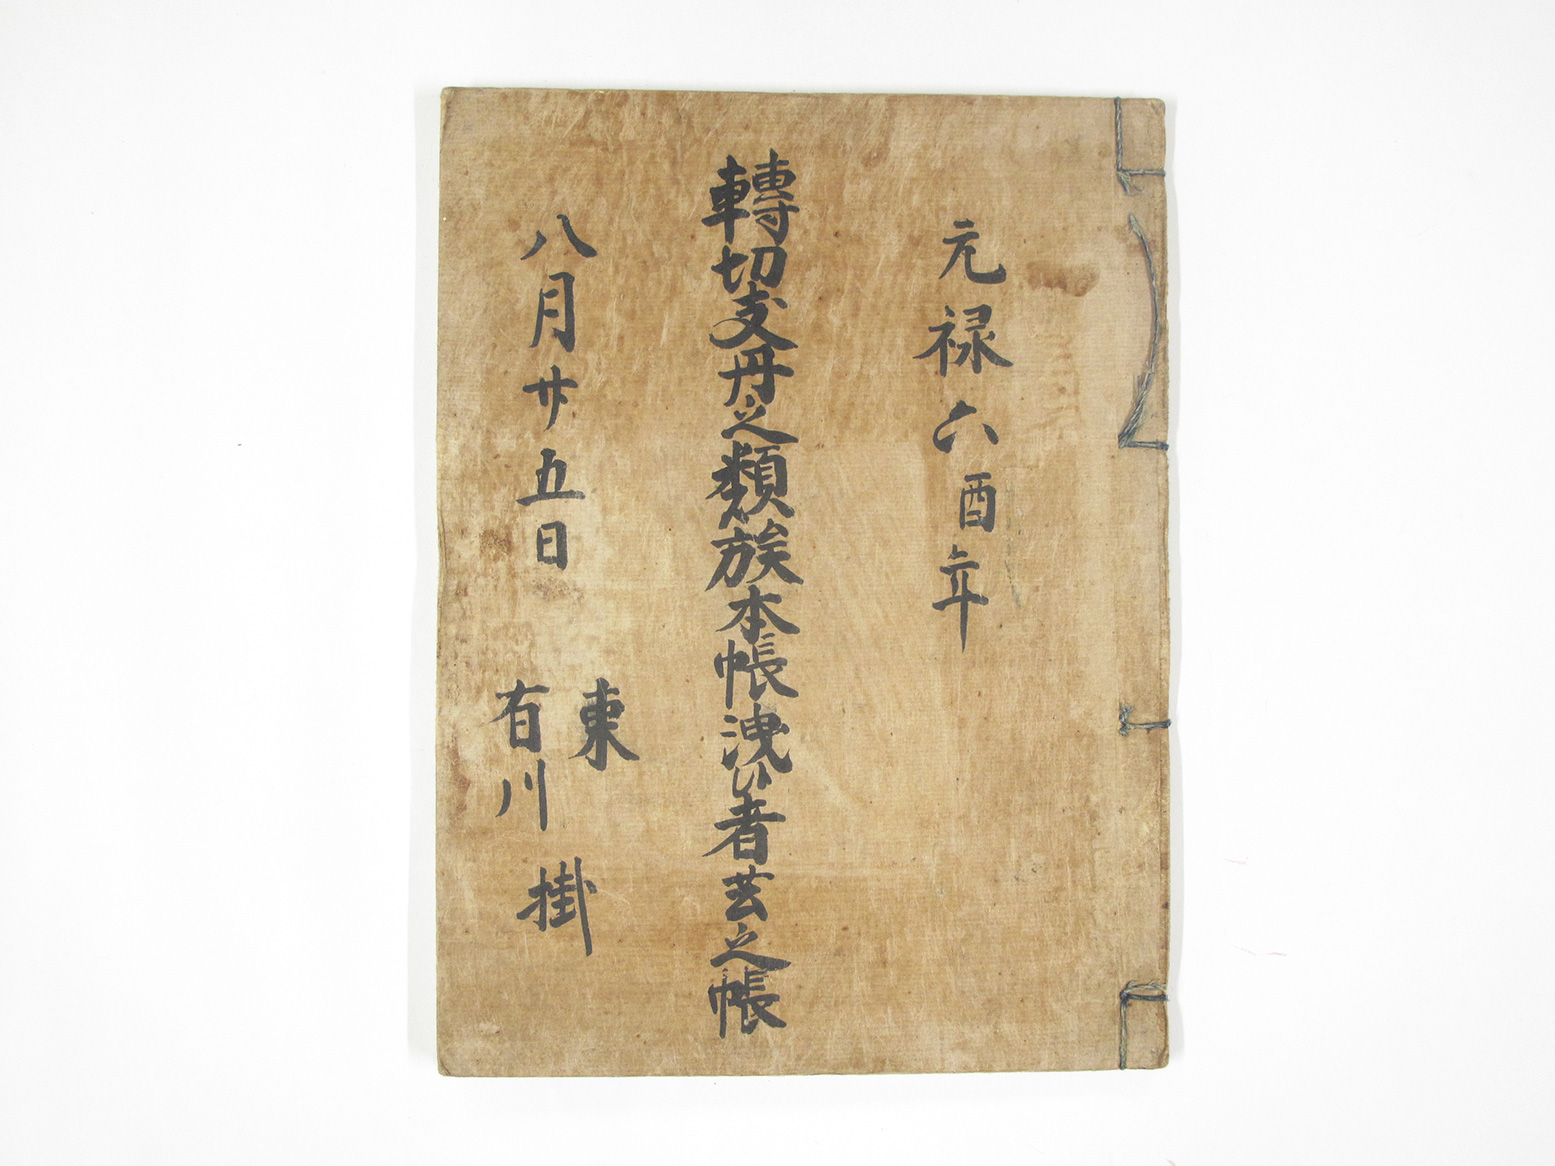 元禄六酉年
轉切支丹之類族本帳洩候者共之帳
八月廿五日
東
有川
掛